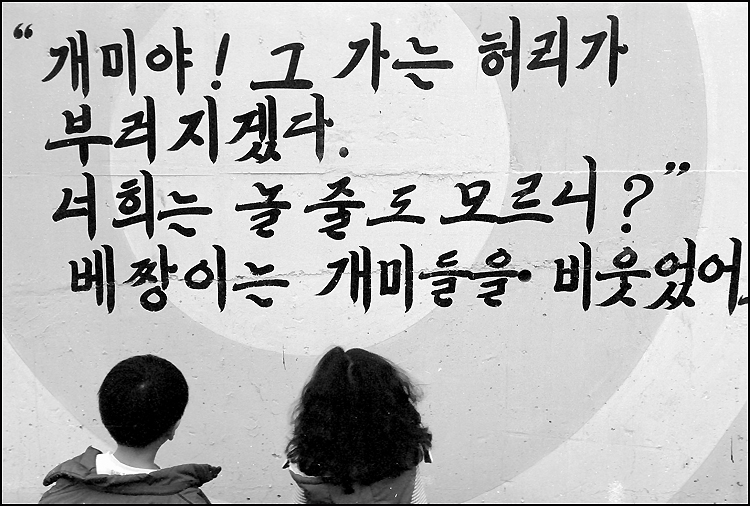 “개미야! 그 가는 허리가
부러지겠다.
너희는 놀 줄도 모르니?”
베짱이는 개미들을 비웃었어